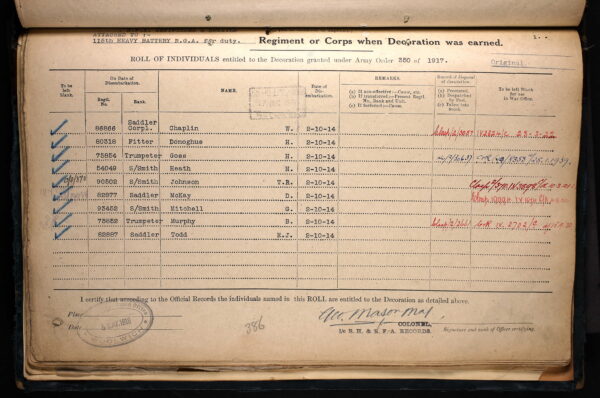 ATTACHED TO :-
115th HEAVY BATTERY R.G.A. for duty.
Regiment or Corps when Decoration was earned.
ROLL OF INDIVIDUALS entitled to the Decoration granted under Army Order 350 of 1917.
Original.
To be left blank.
On Date of Disembarkation.
Regtl. No.
Rank.
NAME.
Date of Disembarkation.
REMARKS.
(a) If non-effective:—Cause, etc.
(b) If transferred:—Present Regtl. No., Rank and Unit.
(c) If forfeited:—Cause.
Record of disposal of decoration.
(a) Presented.
(b) Despatched by Post.
(c) Taken into Stock.
To be left blank for use in War Office.
86866 Saddler Corpl. Chaplin W. 2-10-14
80318 Fitter Donoghue H. 2-10-14
75854 Trumpeter Goss H. 2-10-14
54049 S/Smith Heath H. 2-10-14
90502 S/Smith Johnson T.R. 2-10-14
82977 Saddler McKay D. 2-10-14
93452 S/Smith Mitchell G. 2-10-14
73832 Trumpeter Murphy B. 2-10-14
82887 Saddler Todd E.J. 2-10-14
I certify that according to the Official Records the individuals named in this ROLL are entitled to the Decoration as detailed above.
Place
Date
386
COLONEL,
i/c R. H. & R. F. A. RECORDS.
Signature and rank of Officer certifying.